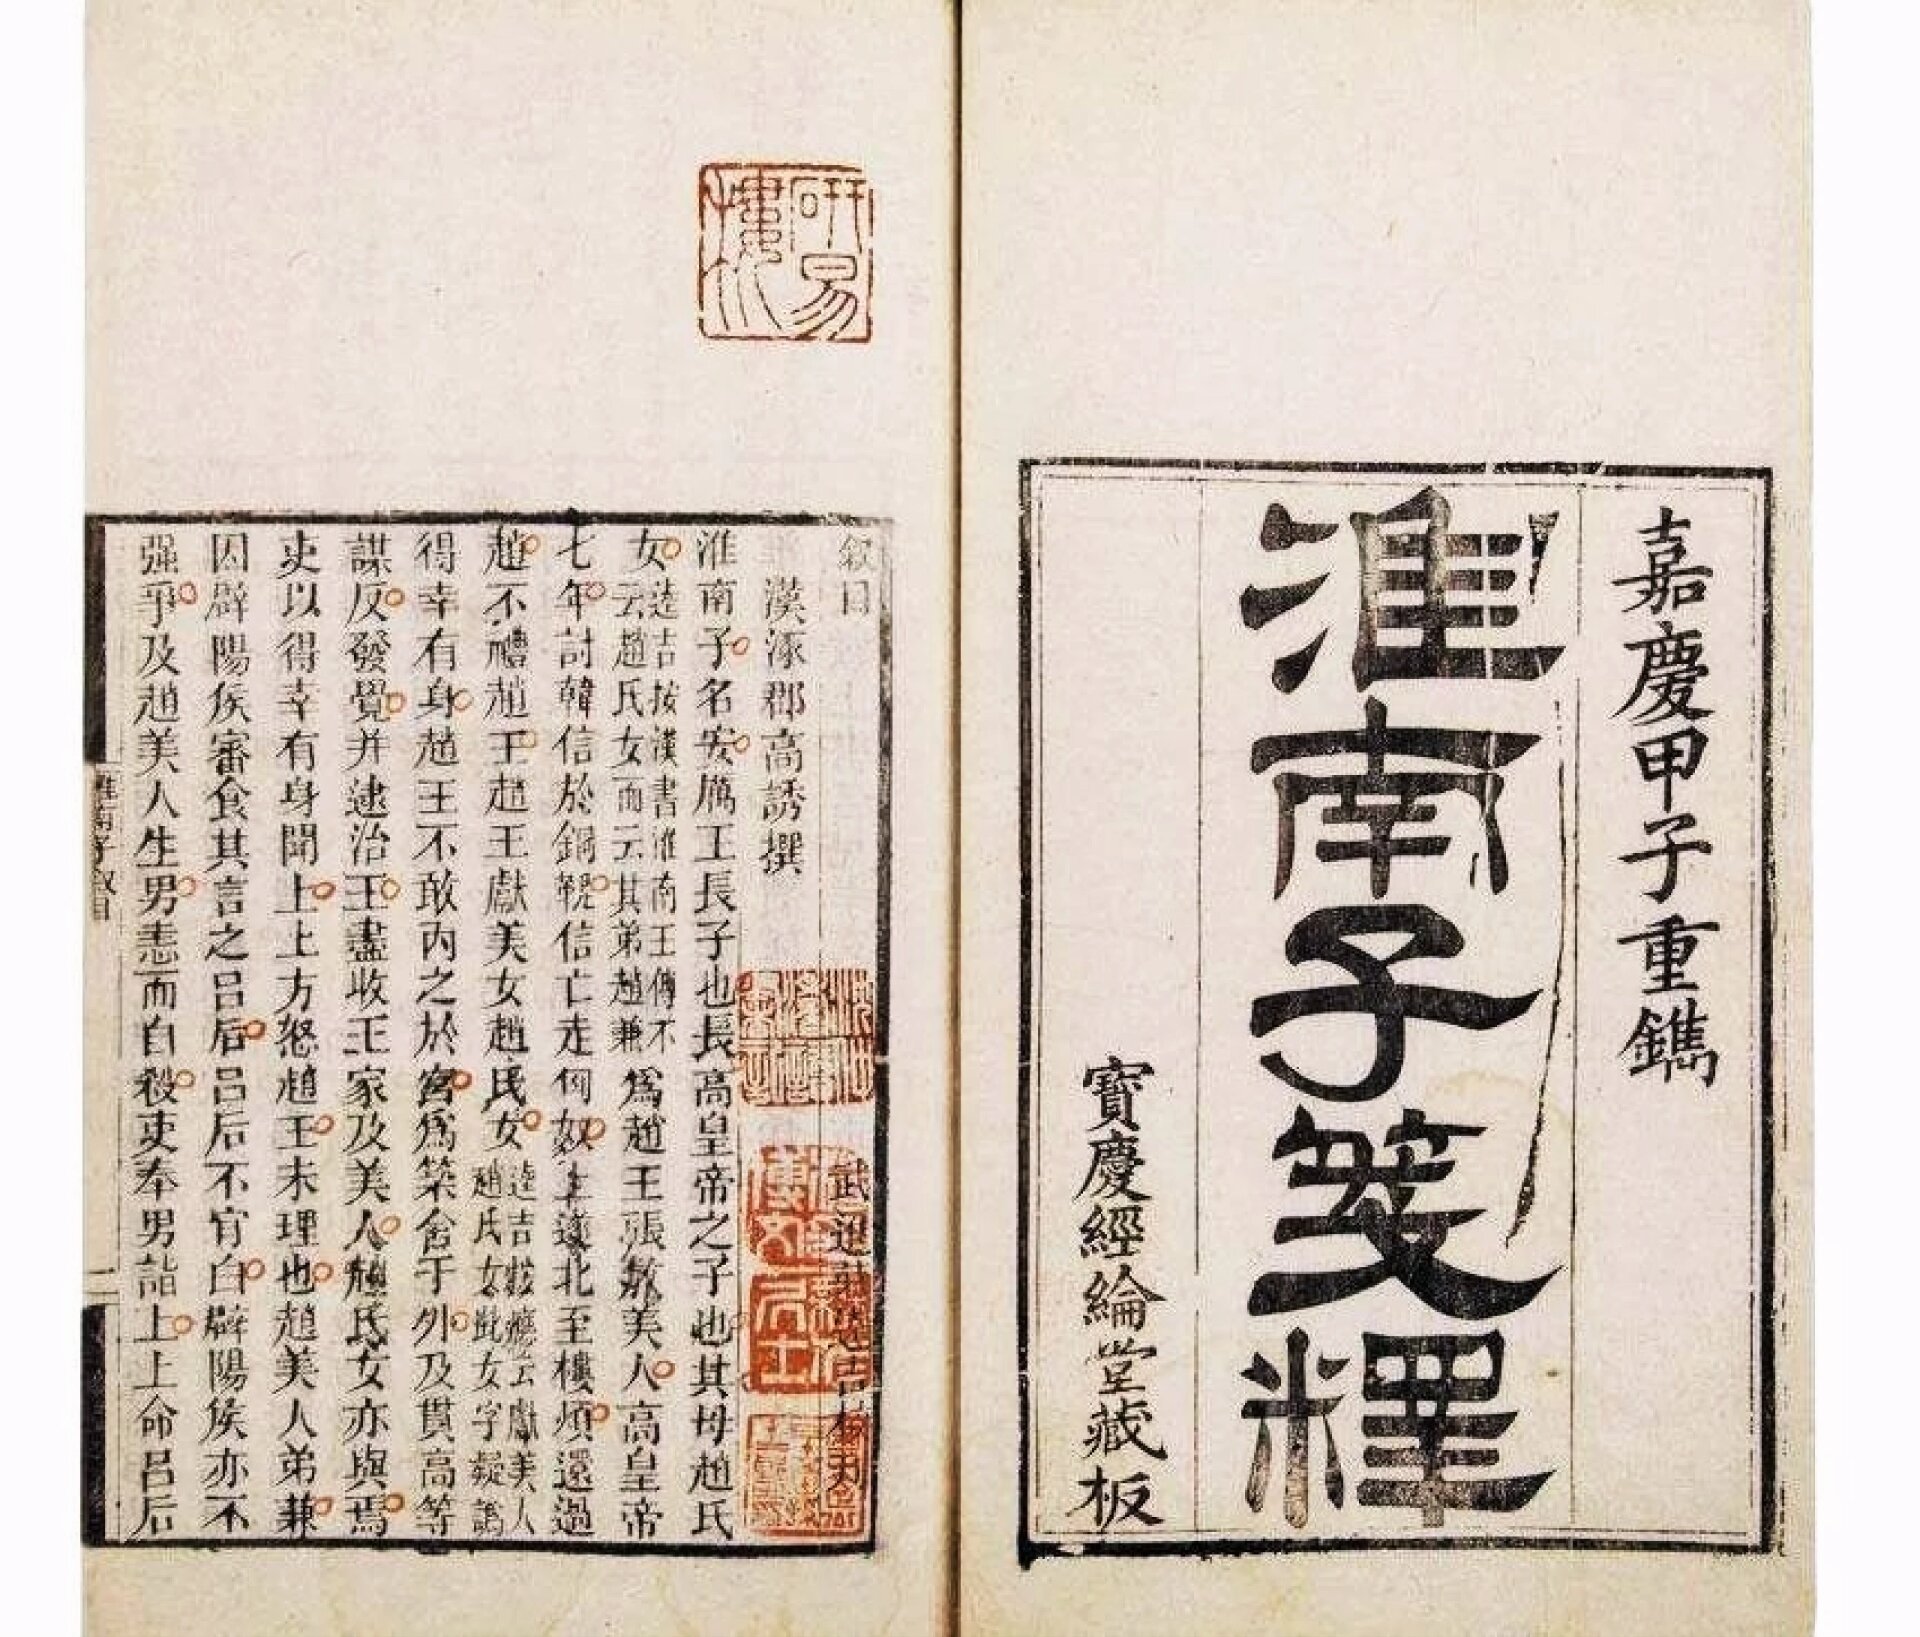 嘉慶甲子重鐫
淮南子箋釋
寶慶經綸堂藏板
研易樓
敘目
漢涿郡高誘撰
武進莊逵吉
淮南子名安厲王長子也長高皇帝之子也其母趙氏
女逵吉按漢書淮南王傳不云趙氏女而云其弟趙兼爲趙王張敖美人高皇帝
七年討韓信於銅鞮信亡走匈奴上遂北至樓煩還過
趙不禮趙王趙王獻美女趙氏女逵吉按應云獻美人趙氏女此女字疑譌
得幸有身趙王不敢內之於宮爲築舍于外及貫高等
謀反發覺并逮治王盡收王家及美人趙氏女亦與焉
吏以得幸有身聞上上方怒趙王未理也趙美人弟兼
因辟陽侯審食其言之呂后呂后不肯白辟陽侯亦不
强爭及趙美人生男恚而自殺吏奉男詣上上命呂后
淮南子敘目
一